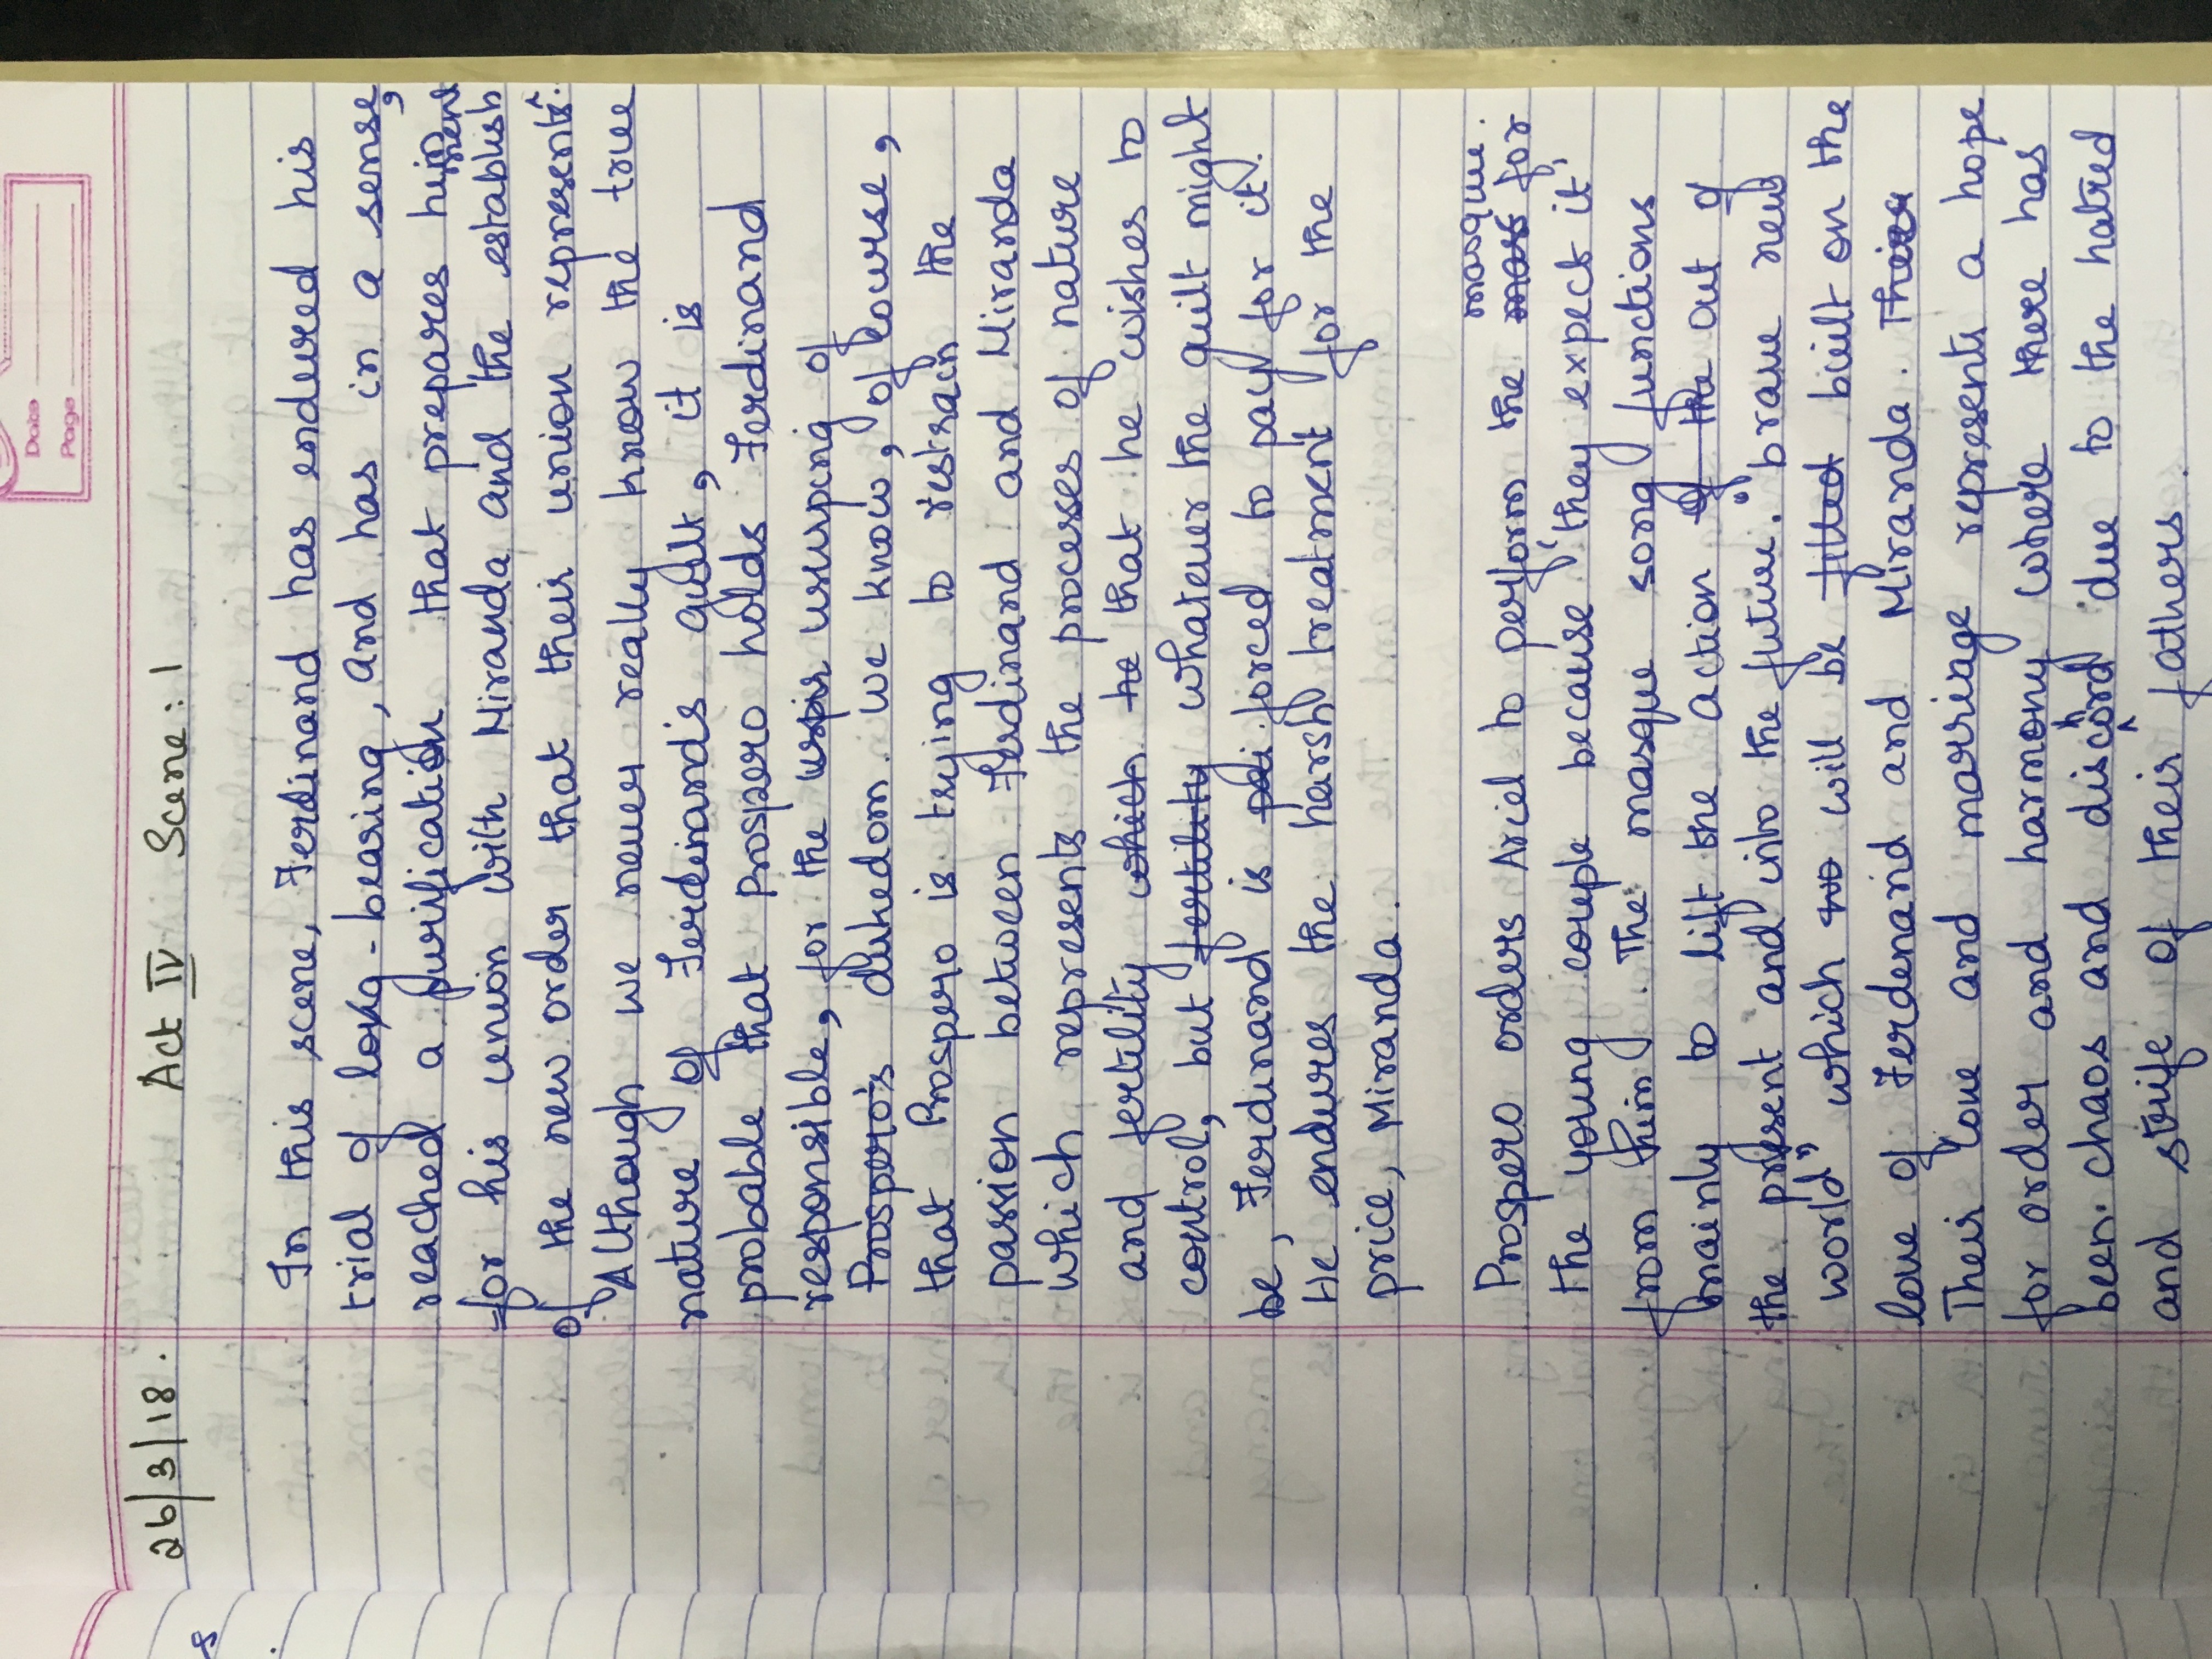 Date
Page
s
26/3/18. Act IV Scene: 1
In this scene, Ferdinand has endured his
trial of log-bearing, and has in a sense,
reached a purification that prepares him
for his union with Miranda and the establishment
of the new order that their union represents.
Although we never really know the true
nature of Ferdinand's guilt, it is
probable that Prospero holds Ferdinand
responsible, for the uspir usurping of
Prospero's dukedom. We know, of course,
that Prospero is trying to restrain the
passion between Ferdinand and Miranda
which represents the processes of nature
and fertility which he that he wishes to
control, but fertility whatever the guilt might
be, Ferdinand is pai forced to pay for it.
He endures the harsh treatment for the
price, Miranda.
masque.
Prospero orders Ariel to perform the mass for
the young couple because 'they expect it'
from him. The masque song functions
mainly to lift the action of the out of
the present and into the future. "brave new
world" which wo will be filled built on the
love of Ferdenand and Miranda.
Their love and marriage represents a hope
for order and harmony where there has
been chaos and discord due to the hatred
and strife of their fathers.